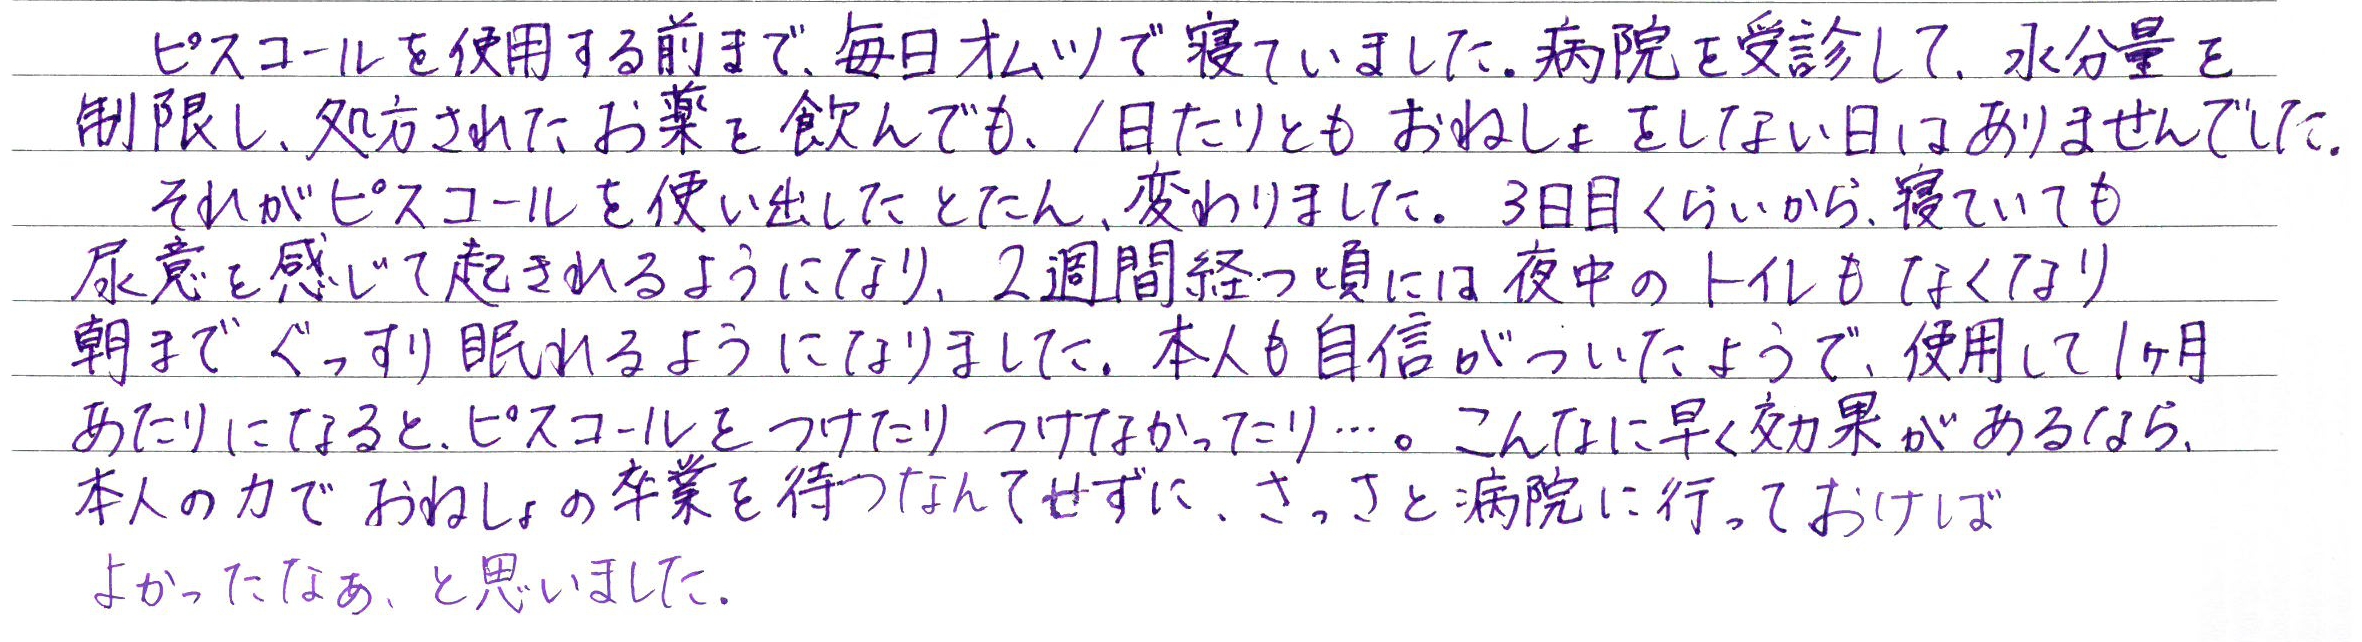 ピスコールを使用する前まで、毎日オムツで寝ていました。病院を受診して、水分量を
制限し、処方されたお薬を飲んでも、1日たりともおねしょをしない日はありませんでした。
それがピスコールを使い出したとたん、変わりました。3日目くらいから、寝ていても
尿意を感じて起きれるようになり、2週間経つ頃には夜中のトイレもなくなり
朝までぐっすり眠れるようになりました。本人も自信がついたようで、使用して1ヶ月
あたりになると、ピスコールをつけたりつけなかったり…。こんなに早く効果があるなら、
本人の力でおねしょの卒業を待つなんてせずに、さっさと病院に行っておけば
よかったなぁ、と思いました。